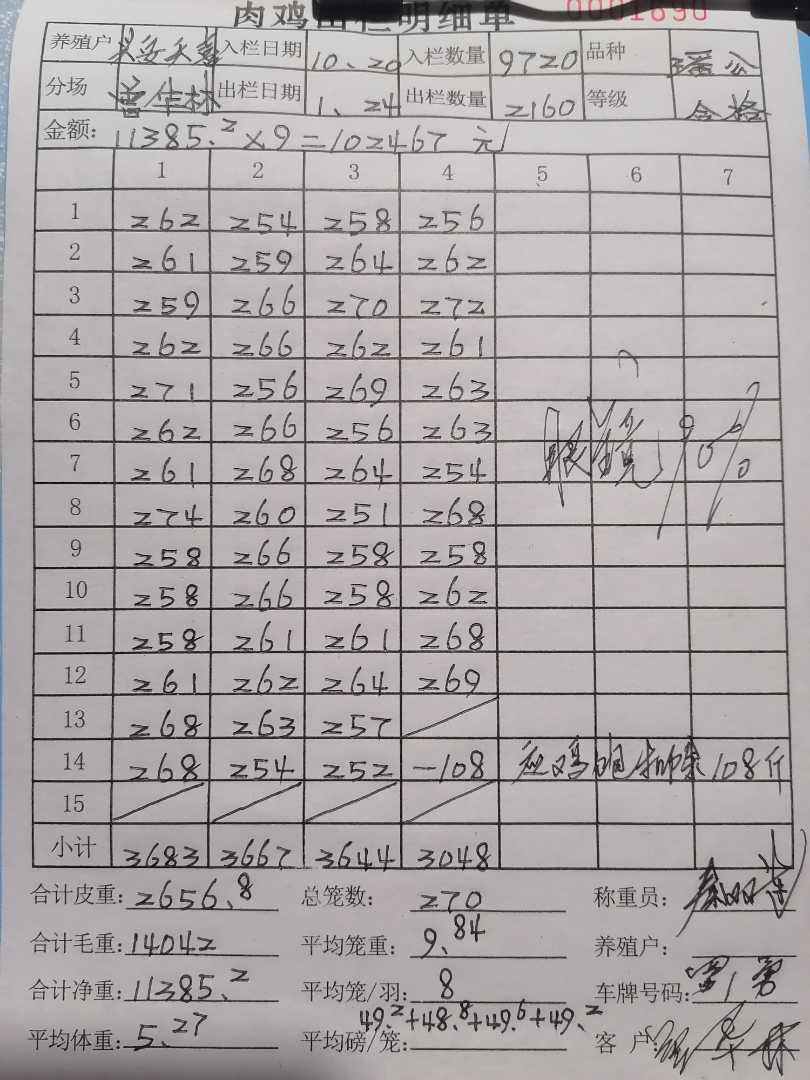 肉鸡出栏明细单 0001690
养殖户 入栏日期 10、20 入栏数量 9720 品种 瑶公
分场 出栏日期 1、24 出栏数量 2160 等级 合格
金额: 11385.2×9=102467 元
1 2 3 4 5 6 7
1 262 254 258 256
2 261 259 264 262
3 259 266 270 272
4 262 266 262 261
5 271 256 269 263
6 262 266 256 263
7 261 268 264 254 眼镜 90%
8 274 260 251 268
9 258 266 258 258
10 258 266 258 262
11 258 261 261 268
12 261 262 264 269
13 268 263 257
14 268 254 252 -108 108斤
15
小计 3683 3667 3644 3048
合计皮重: 2656.8 总笼数: 270 称重员:
合计毛重: 14042 平均笼重: 9.84 养殖户:
合计净重: 11385.2 平均笼/羽: 8 车牌号码:
平均体重: 5.27 平均磅/笼: 49.2+48.8+49.6+49.2 客 户: